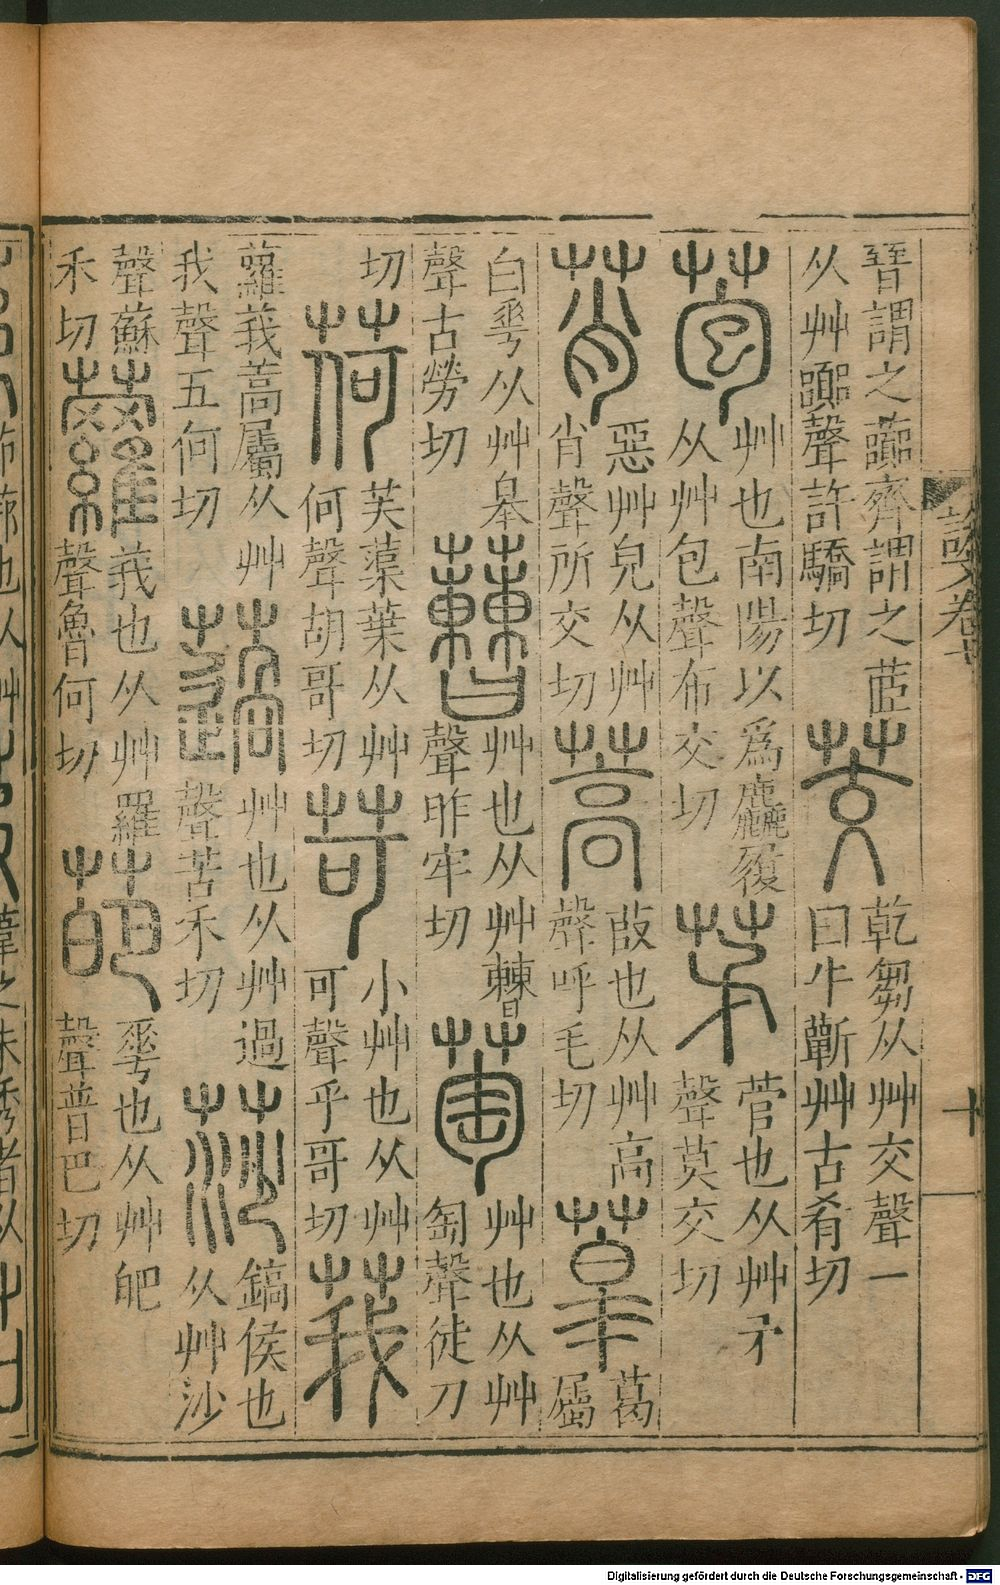 晉謂之虈齊謂之茝
从艸嚻聲許驕切
茭
乾芻从艸交聲一
曰牛蘄艸古肴切
苞
艸也南陽以爲麤履
从艸包聲布交切
茅
菅也从艸矛
聲莫交切
莦
惡艸皃从艸
肖聲所交切
蒿
菣也从艸高
聲呼毛切
葛
屬
白華从艸皋
聲古勞切
艸也从艸
聲昨牢切
萄
艸也从艸
匋聲徒刀
切
荷
芙蕖葉从艸
何聲胡哥切
苛
小艸也从艸
可聲乎哥切
莪
蘿莪蒿屬从艸
我聲五何切
薖
艸也从艸過
聲苦禾切
莎
鎬侯也
从艸沙
聲蘇
禾切
蘿
莪也从艸羅
聲魯何切
葩
華也从艸皅
聲普巴切
說文卷十
十
Digitalisierung gefördert durch die Deutsche Forschungsgemeinschaft - DFG